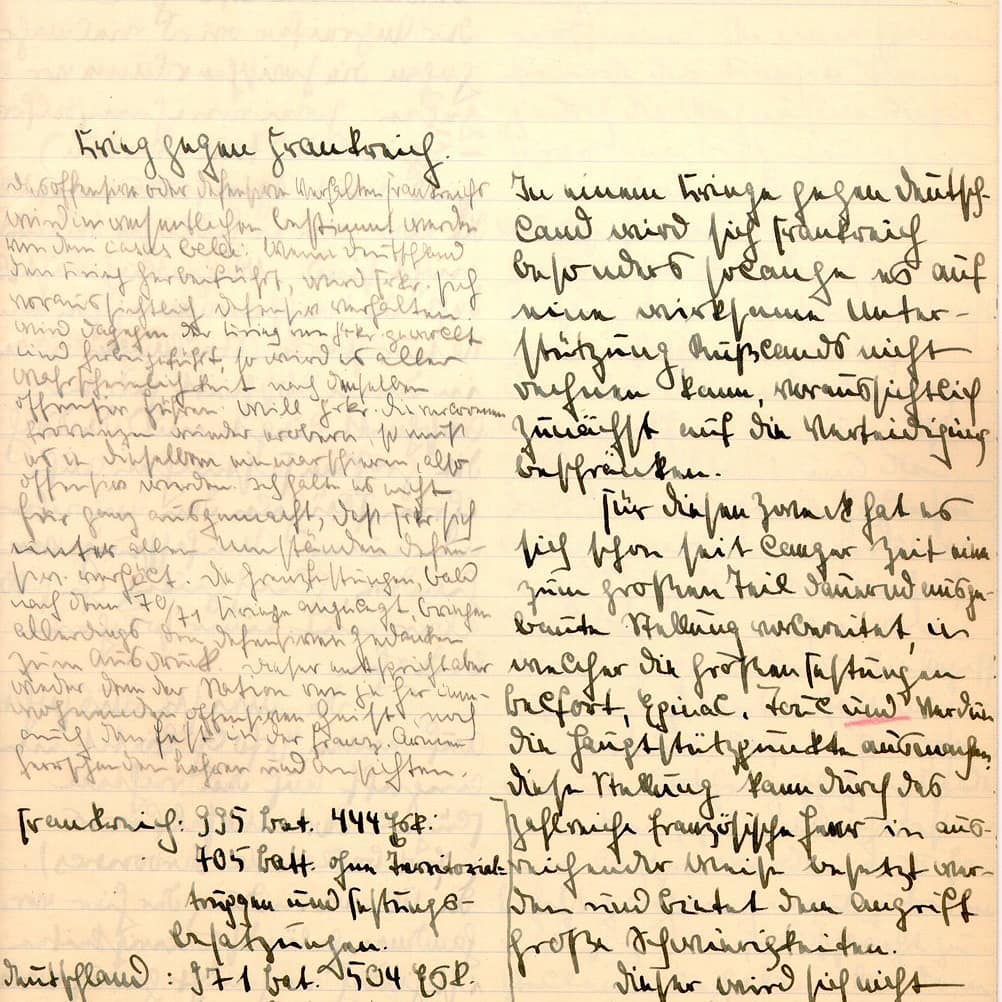 Krieg gegen Frankreich.
Das offensive oder defensive Verhalten Frankreichs
wird im wesentlichen bestimmt werden
von dem casus belli. Wenn Deutschland
den Krieg herbeiführt, wird Frkr. sich
voraussichtlich defensiv verhalten.
Wird dagegen der Krieg von Frkr. gewollt
und herbeigeführt, so wird es aller
Wahrscheinlichkeit nach denselben
offensiv führen. Will Frkr. die verlorenen
Provinzen wieder erobern, so muß
es in dieselben einmarschieren, also
offensiv werden. Ich halte es nicht
für ganz ausgemacht, daß Frkr. sich
unter allen Umständen defen-
siv verhält. Die Grenzfestungen, bald
nach dem 70/71 Kriege angelegt, bringen
allerdings den defensiven Gedanken
zum Ausdruck. Dieser entspricht aber
weder dem der Nation von je her inne-
wohnenden offensiven Geist, noch
auch den jetzt in der franz. Armee
herrschenden Lehren und Ansichten.
Frankreich: 995 Bat. 444 Esk.
705 Batt. ohne Territorial-
truppen und Festungs-
besatzungen.
Deutschland: 971 Bat. 504 Esk.
In einem Kriege gegen Deutsch-
land wird sich Frankreich
besonders solange es auf
eine wirksame Unter-
stützung Rußlands nicht
rechnen kann, voraussichtlich
zunächst auf die Verteidigung
beschränken.
Für diesen Zweck hat es
sich schon seit langer Zeit eine
zum großen Teil dauernd ausge-
baute Stellung vorbereitet, in
welcher die großen Festungen
Belfort, Epinal, Toul und Verdun
die Hauptstützpunkte ausmachen.
Diese Stellung kann durch das
zahlreiche französische Heer in aus-
reichender Weise besetzt wer-
den und bietet dem Angriff
große Schwierigkeiten.
Dieser wird sich nicht